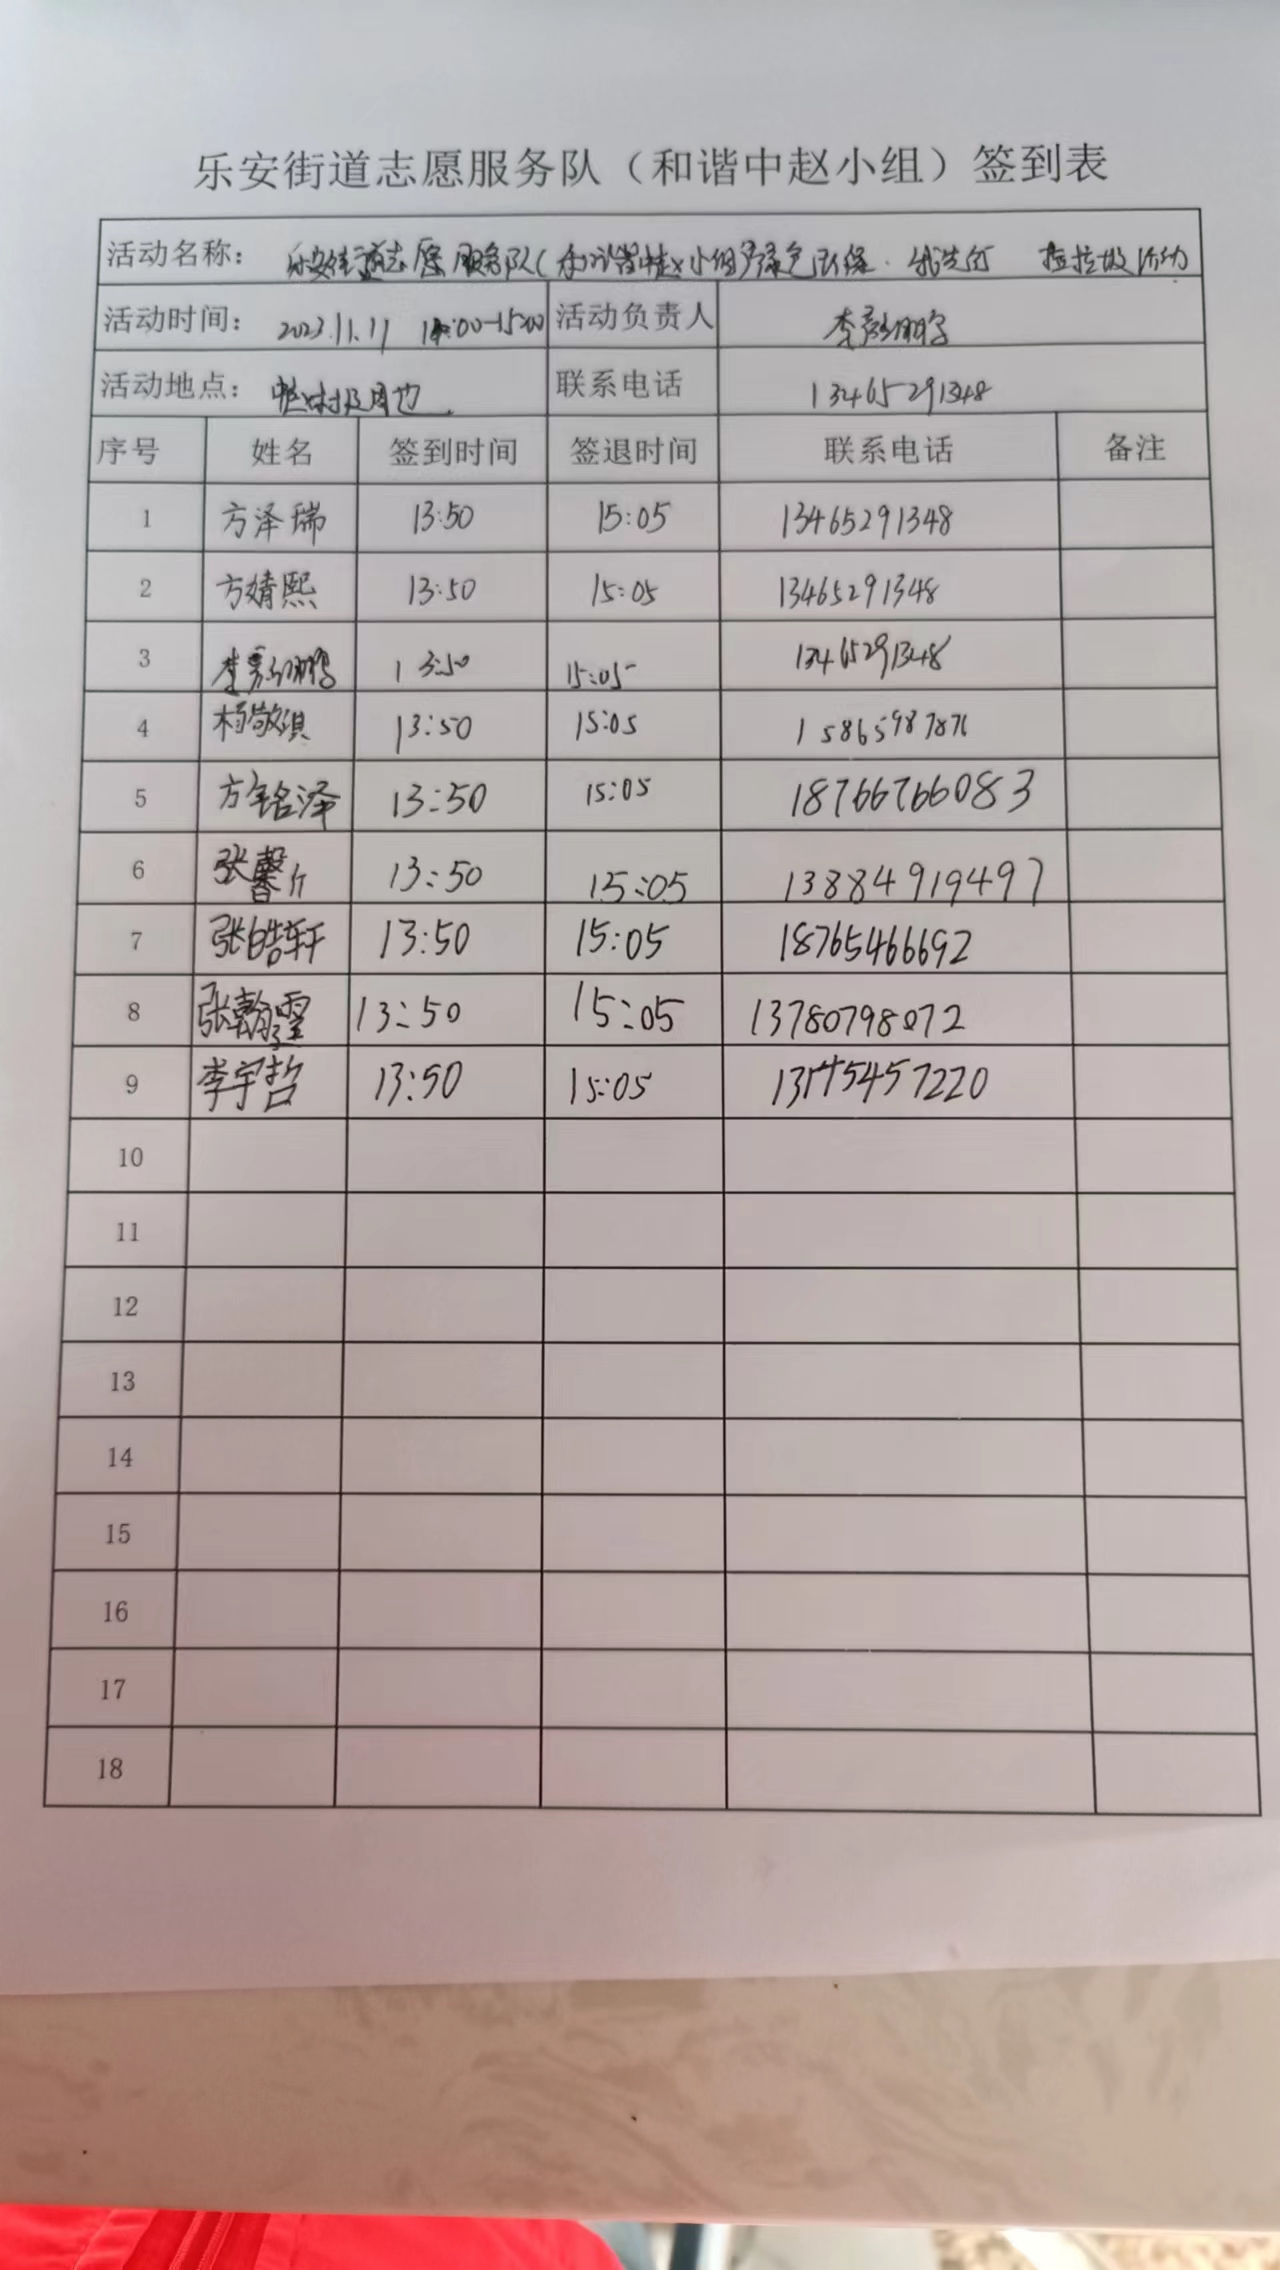 乐安街道志愿服务队（和谐中赵小组）签到表
活动名称： 乐安街道志愿服务队（和谐中赵小组）绿色环保 我先行 捡垃圾活动
活动时间： 2023.11.11 14:00-15:00 活动负责人 李
活动地点： 中赵村及周边 联系电话 13465291348
序号 姓名 签到时间 签退时间 联系电话 备注
1 方泽瑞 13:50 15:05 13465291348
2 方婧熙 13:50 15:05 13465291348
3 李 13:50 15:05 13465291348
4 杨敬淇 13:50 15:05 15865987876
5 方铭泽 13:50 15:05 18766766083
6 张馨 13:50 15:05 13884919497
7 张皓轩 13:50 15:05 18765466692
8 张瀚 13:50 15:05 13780798072
9 李宇哲 13:50 15:05
10
11
12
13
14
15
16
17
18